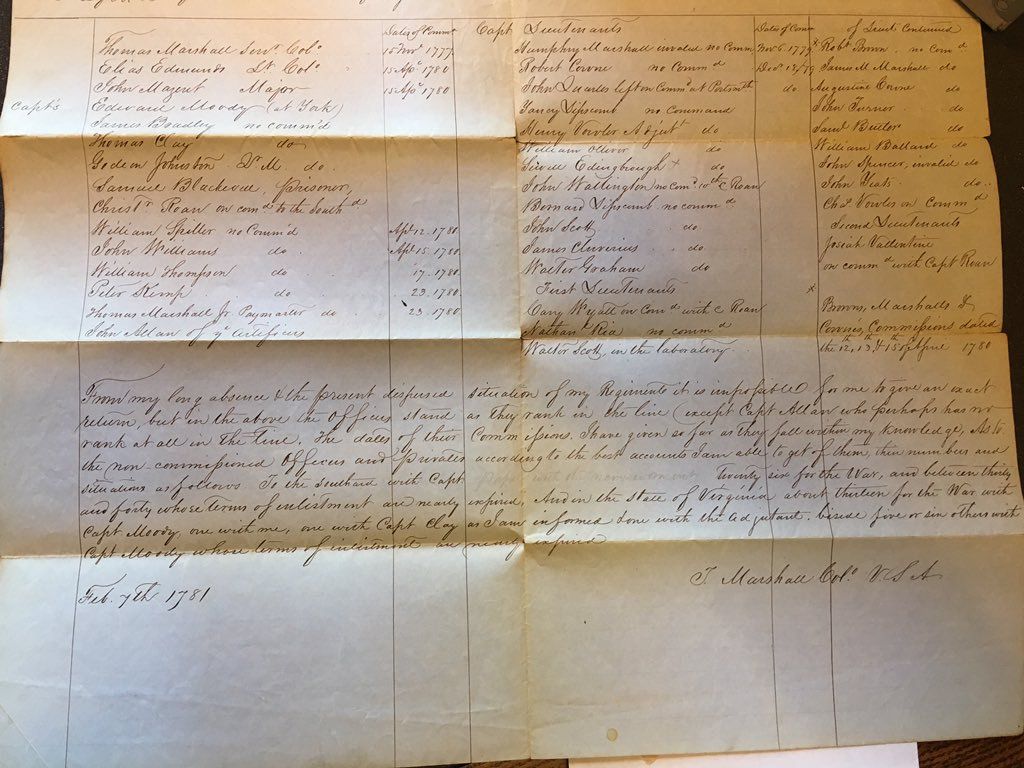 Dates of Commn
Thomas Marshall Senr. Colo. 15 Novr 1777.
Elias Edmunds Lt. Colo. 15 Apl. 1780
John Mazeret Major 15 Apl. 1780
Capt's Edward Moody (at York)
James Bradley no comm'd
Thomas Clay do
Godeon Johnston Q. M do.
Samuel Blackwell, prisoner,
Christr Roan on comd to the Southd
William Spiller no Comm'd Apl. 12. 1780
John Williams do Apl. 15. 1780
William Thompson do 17. 1780
Peter Kemp do 23. 1780
Thomas Marshall Jr Paymaster do 23. 1780
John Allan of ye Artificers
Capt Lieutenants Dates of Com
Humphry Marshall invalid no Comm Nov 6 1779
Robert Corone no Commd Dec. 13/79
John Quarles left on Commd at Portsmth do
Yancy Lipscomb no command
Henry Vowler Adjut do
William Oliver do
Sivole Edingbrough + do
John Wallington no Comd 10th C Roan
Bernard Lipscomb no commd
John Scott do
James Cluverius do
Walter Graham do
First Lieutenants
Cary Wyatt on Comd with C Roan
Nathan Ria no commd
Walter Scott, in the laboratory
of Lieut Continued
x Robt Brown no comd
James M Marshall do
Augustine Corone do
John Turner do
Saml Butler do
William Ballard do
John Spencer, invalid do
John Yeats do.
Chs Vowles on Commd
Second Lieutenants
Josiah Valdentine
on commd with Capt Roan
x
Browns, Marshalls &
Corones, Commissions dated
the 12th, 13th, & 15th of April 1780
From my long absence & the present dispersed situation of my Regiments it is impossible for me to give an exact
return, but in the above the Officers stand as they rank in the line (except Capt Allan who perhaps has no
rank at all in the line. The dates of their Commissions. I have given so far as they fall within my knowledge, As to
the non-commissioned Officers and privates according to the best accounts I am able to get of them, their numbers and
situations as follows To the southard with Capt Twenty six for the War, and between thirty
and forty whose terms of enlistment are nearly expired, And in the State of Virginia about thirteen for the War with
Capt Moody, one with me, one with Capt Clay as I am informed & one with the adjutant. beside five or six others with
Capt Moody whose terms of inlistment are nearly expired
T Marshall Colo. V S A
Feb. 7th 1781